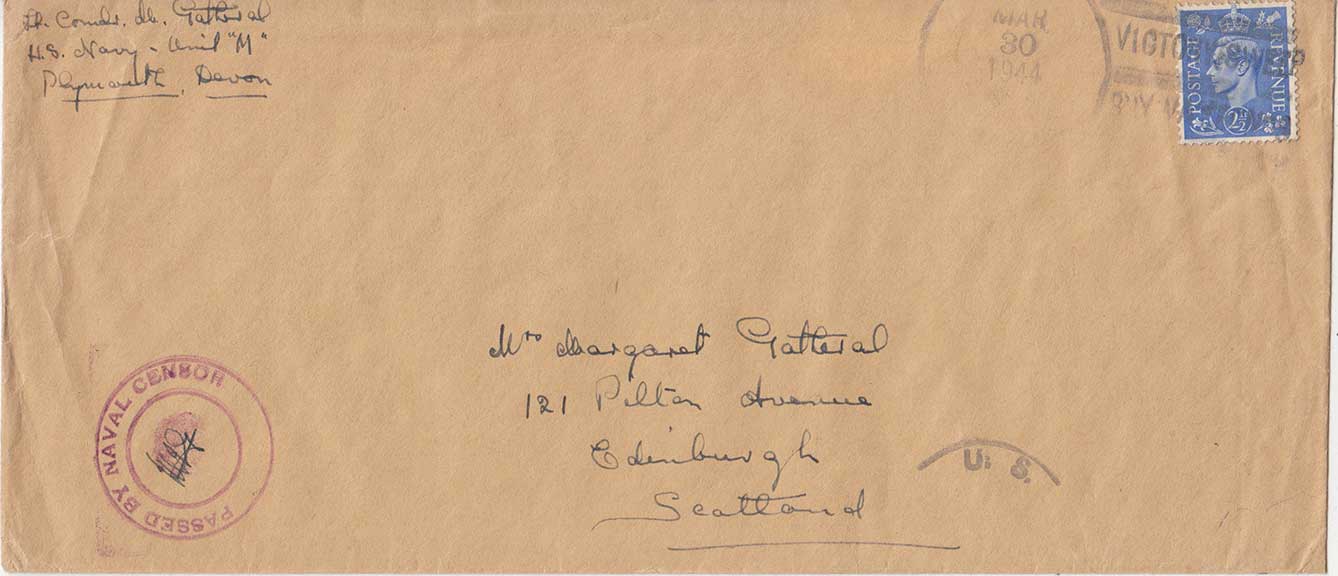 Lt. Comdr. M. Gatheral
U.S. Navy - Unit "M"
Plymouth, Devon
MAR
30
1944
VICTORY
BUY
POSTAGE
REVENUE
2½
Mrs Margaret Gatheral
121 Pilton Avenue
Edinburgh
Scotland
U. S.
PASSED BY NAVAL CENSOR